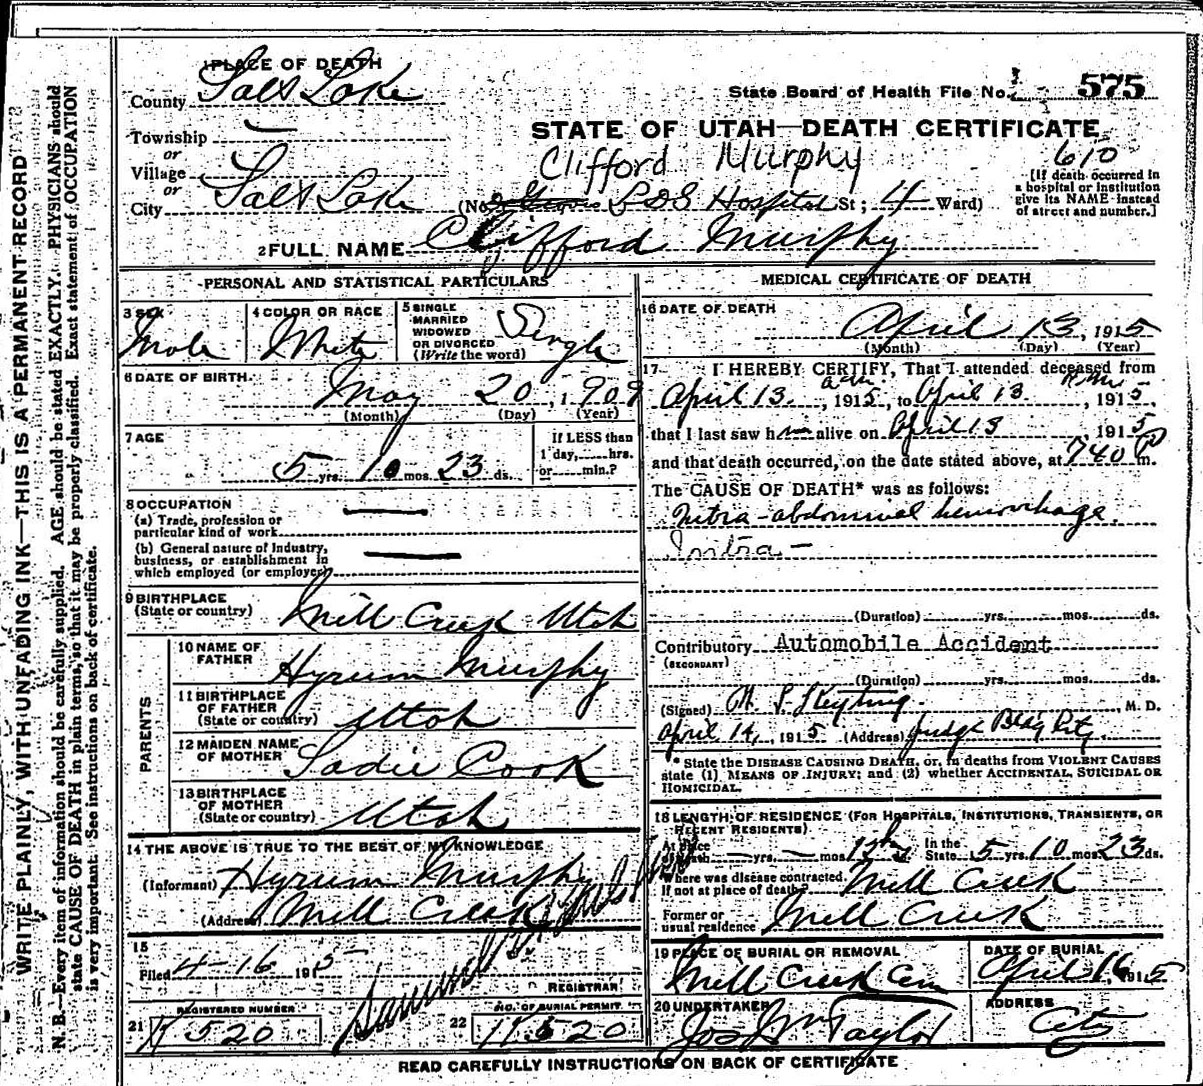 WRITE PLAINLY, WITH UNFADING INK—THIS IS A PERMANENT RECORD
N. B.—Every item of information should be carefully supplied. AGE should be stated EXACTLY. PHYSICIANS should
state CAUSE OF DEATH in plain terms, so that it may be properly classified. Exact statement of OCCUPATION
is very important. See instructions on back of certificate.
1 PLACE OF DEATH
County Salt Lake
State Board of Health File No. 575
Township
STATE OF UTAH—DEATH CERTIFICATE
or
Clifford Murphy 610
Village
or
City Salt Lake (No. L D S Hospital St; 4 Ward)
[If death occurred in
a hospital or institution
give its NAME instead
of street and number.]
2 FULL NAME Clifford Murphy
PERSONAL AND STATISTICAL PARTICULARS
3 SEX Male
4 COLOR OR RACE White
5 SINGLE
MARRIED
WIDOWED
OR DIVORCED
(Write the word) Single
6 DATE OF BIRTH May 20, 1909
(Month) (Day) (Year)
7 AGE
5 yrs. 10 mos. 23 ds.
If LESS than
1 day,......hrs.
or......min.?
8 OCCUPATION
(a) Trade, profession or
particular kind of work
(b) General nature of Industry,
business, or establishment in
which employed (or employer)
9 BIRTHPLACE
(State or country) Mill Creek Utah
PARENTS
10 NAME OF
FATHER Hyrum Murphy
11 BIRTHPLACE
OF FATHER
(State or country) Utah
12 MAIDEN NAME
OF MOTHER Sadie Cook
13 BIRTHPLACE
OF MOTHER
(State or country) Utah
14 THE ABOVE IS TRUE TO THE BEST OF MY KNOWLEDGE
(Informant) Hyrum Murphy
(Address) Mill Creek
15
Filed 4-16 1915
REGISTRAR
REGISTERED NUMBER
21 520
NO. OF BURIAL PERMIT
22 520
MEDICAL CERTIFICATE OF DEATH
16 DATE OF DEATH
April 13, 1915
(Month) (Day) (Year)
17 I HEREBY CERTIFY, That I attended deceased from
April 13 a.m., 1915, to April 13, 1915,
that I last saw him alive on April 13 1915
and that death occurred, on the date stated above, at 740 P m.
The CAUSE OF DEATH* was as follows:
Intra-abdominal hemorrhage.
Intra—
(Duration) yrs. mos. ds.
Contributory Automobile Accident
(SECONDARY)
(Duration) yrs. mos. ds.
(Signed) M. D.
April 14, 1915 (Address) Judge Bldg City.
* State the DISEASE CAUSING DEATH, or, in deaths from VIOLENT CAUSES
state (1) MEANS OF INJURY; and (2) whether ACCIDENTAL, SUICIDAL OR
HOMICIDAL.
18 LENGTH OF RESIDENCE (FOR HOSPITALS, INSTITUTIONS, TRANSIENTS, OR
RECENT RESIDENTS)
At place
of death — yrs. — mos. In the
State 5 yrs. 10 mos. 23 ds.
Where was disease contracted.
If not at place of death? Mill Creek
Former or
usual residence Mill Creek
19 PLACE OF BURIAL OR REMOVAL
Mill Creek Cem
DATE OF BURIAL
April 16, 1915
20 UNDERTAKER
Jos Wm Taylor
ADDRESS
City
READ CAREFULLY INSTRUCTIONS ON BACK OF CERTIFICATE